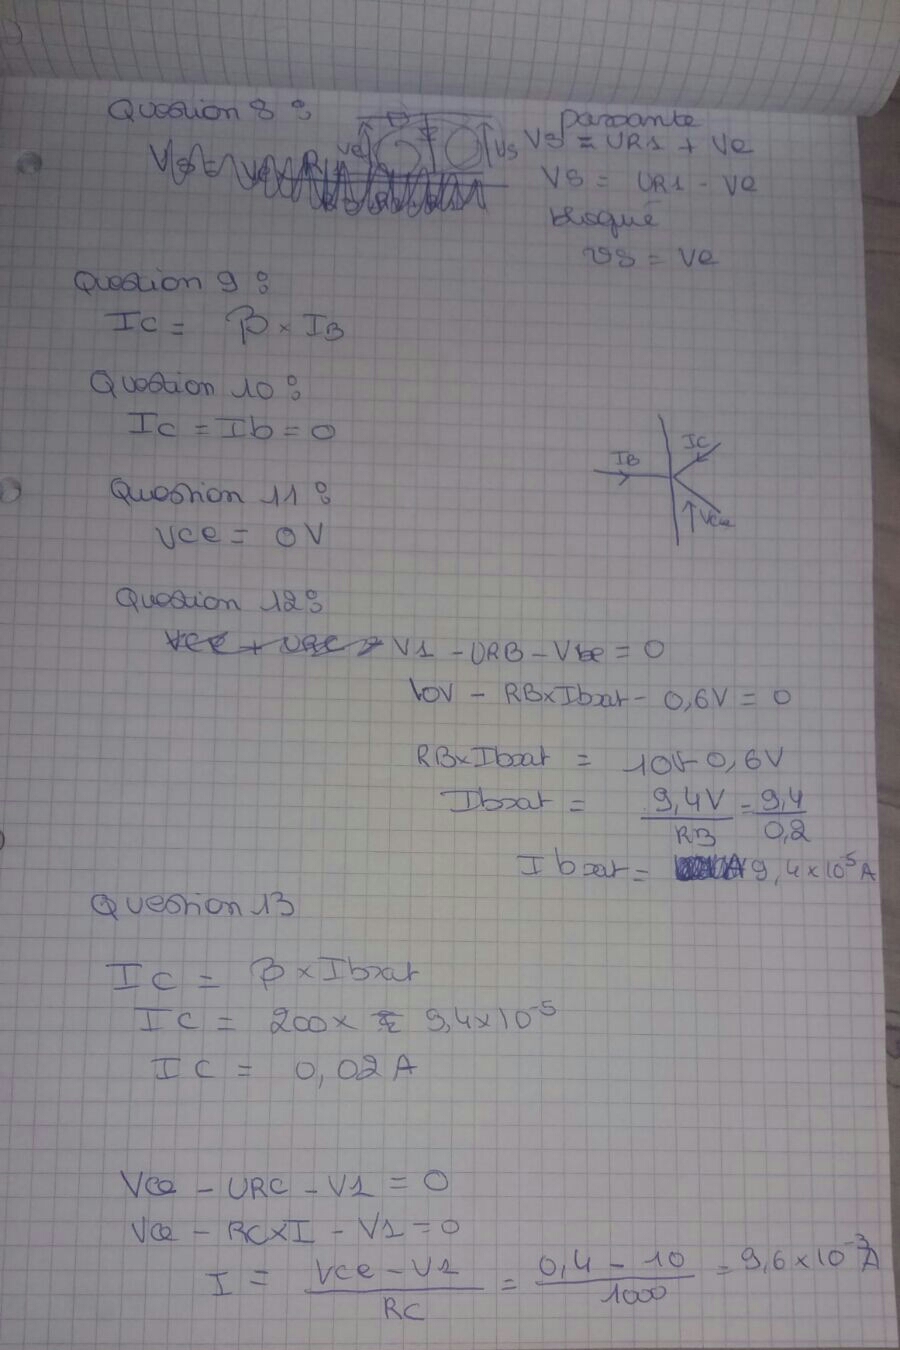 Question 8 :
Ve
Vs
passante
VS = UR1 + Ve
VS = UR1 - Ve
bloqué
VS = Ve
Question 9 :
Ic = β × IB
Question 10 :
Ic = Ib = 0
IB
IC
Vce
Question 11 :
Vce = 0V
Question 12 :
V1 - URB - Vbe = 0
10V - RB×Ibsat - 0,6V = 0
RB×Ibsat = 10V-0,6V
Ibsat = 9,4V/RB = 9,4/0,2
Ibsat = 9,4×10⁻⁵A
Question 13
Ic = β × Ibsat
Ic = 200× 9,4×10⁻⁵
Ic = 0,02A
Vce - URC - V1 = 0
Vce - RC×I - V1 = 0
I = Vce - V1/RC = 0,4 - 10/1000 = 9,6×10⁻³A